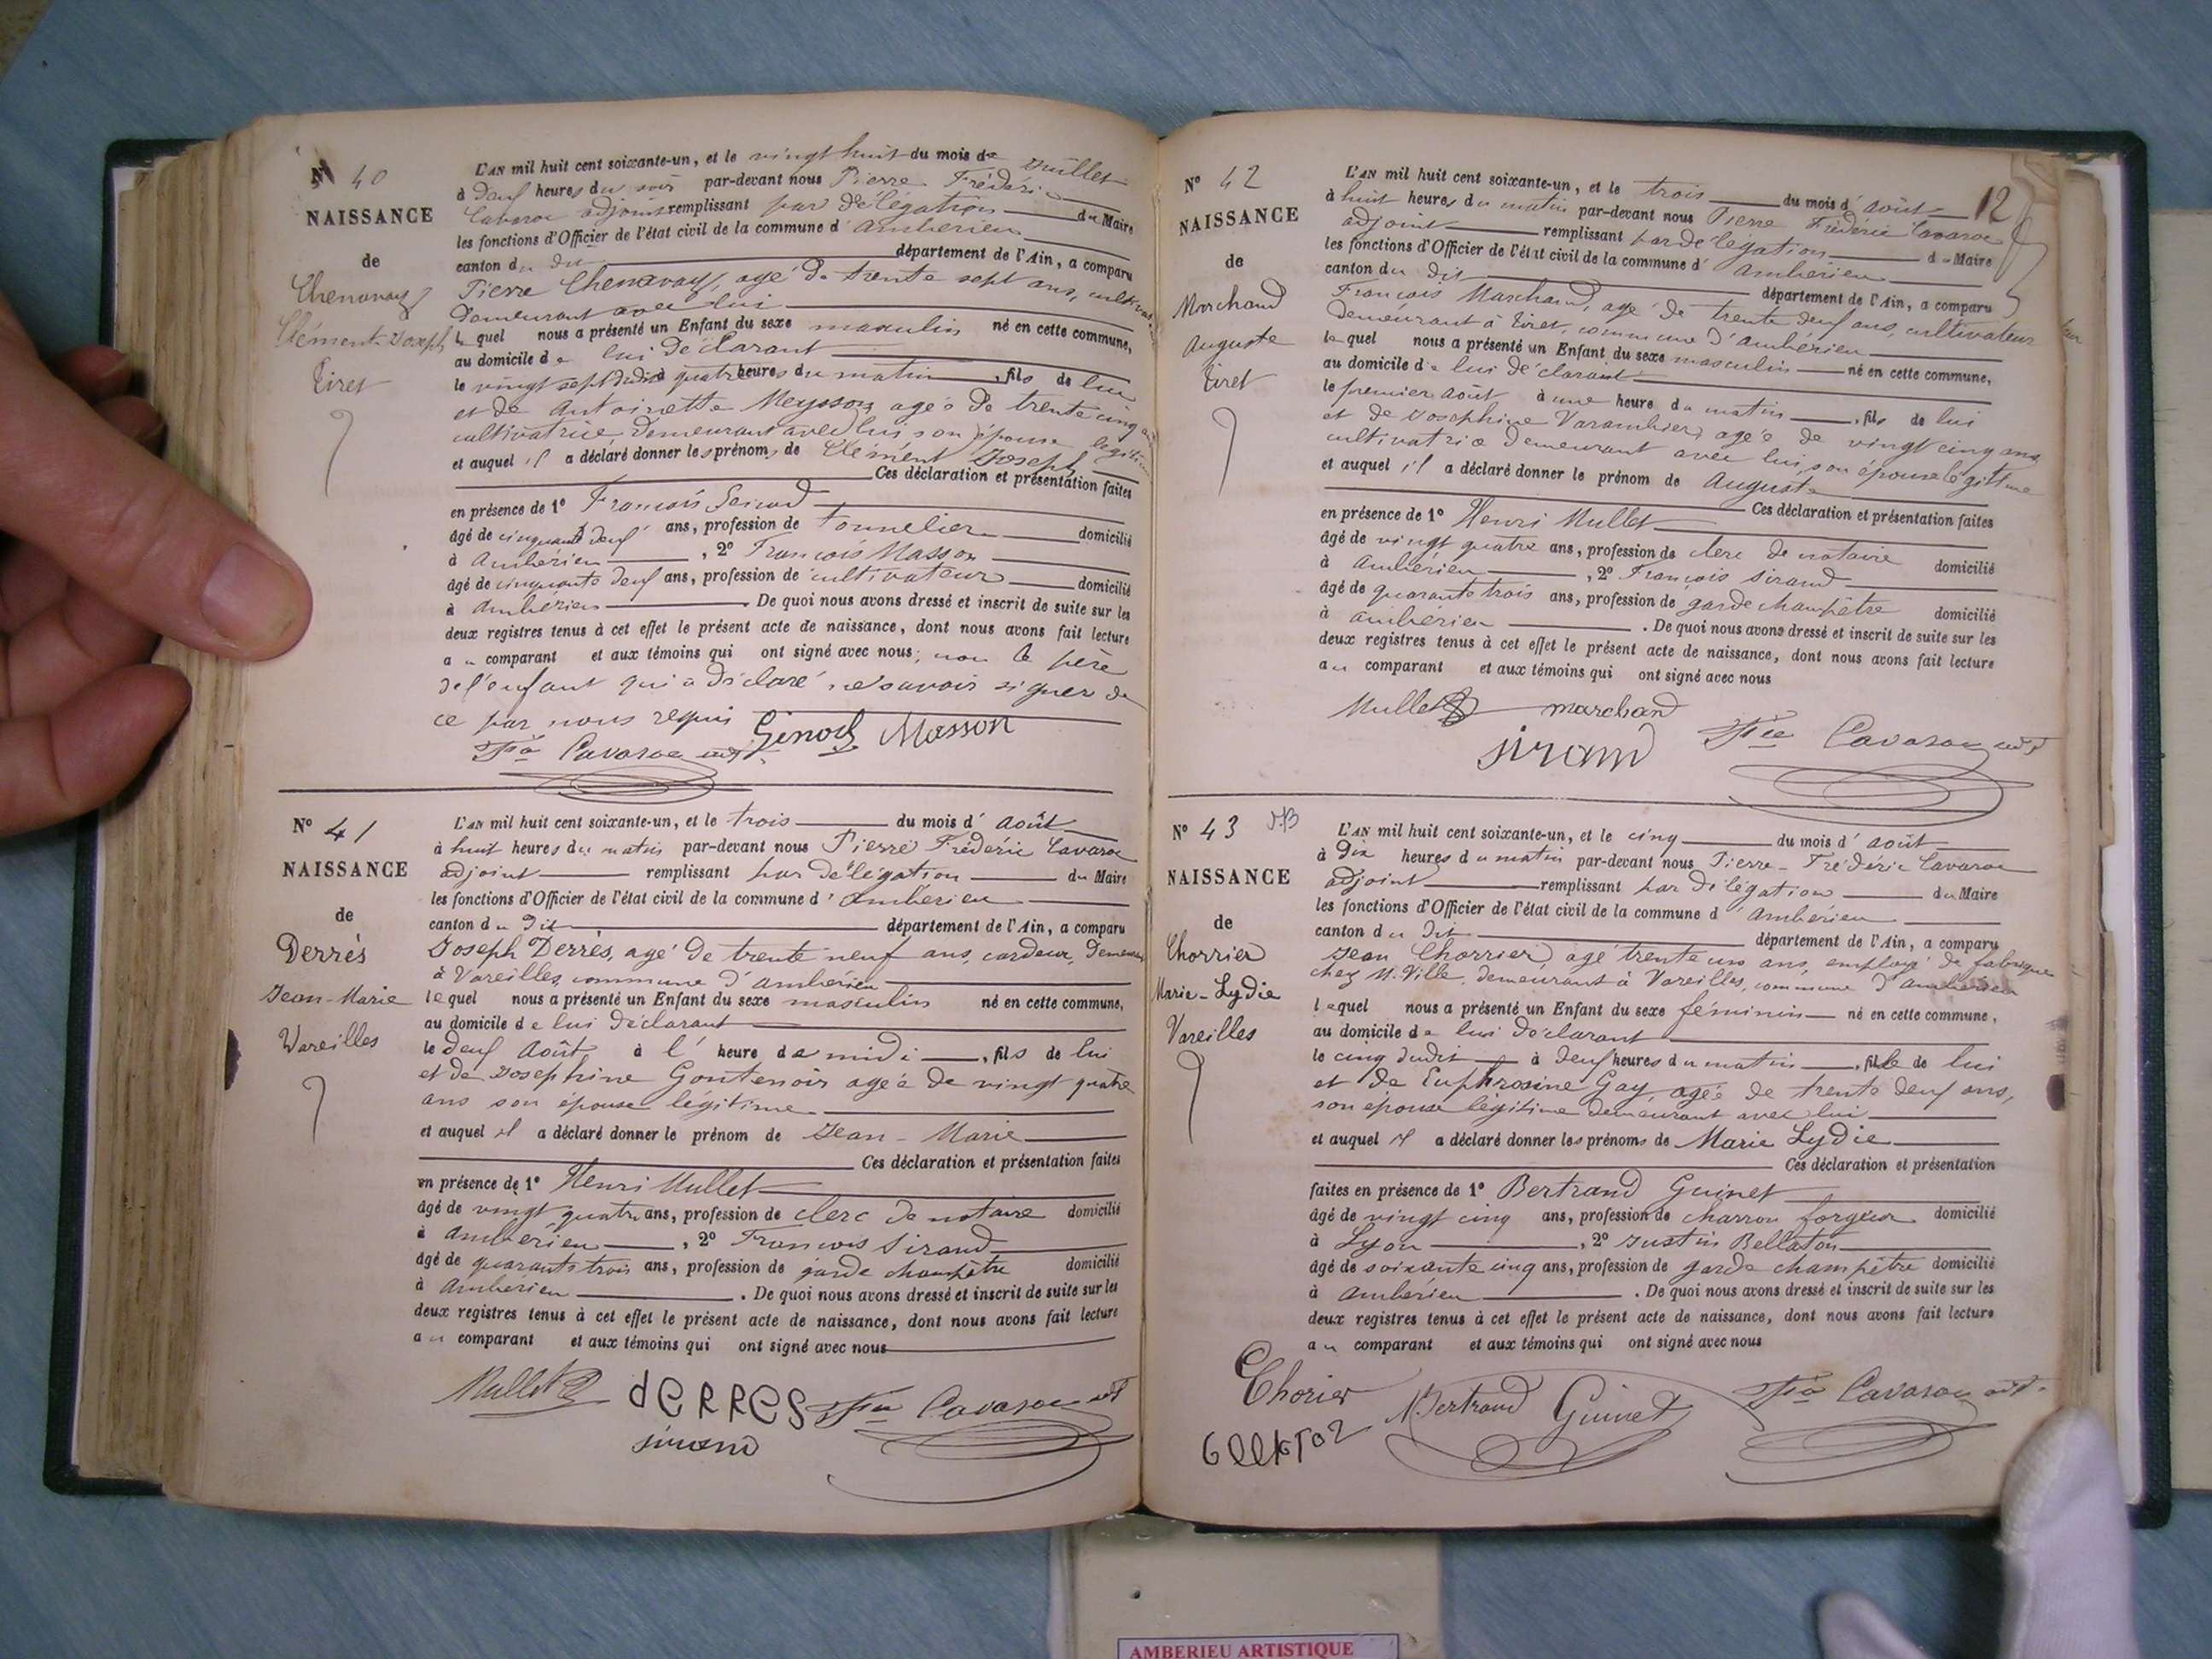 N° 40
NAISSANCE
de
Chenavay
Clément-Joseph
Tiret
L'AN mil huit cent soixante-un, et le vingt huit du mois de Juillet
à deux heures du soir par-devant nous Pierre Frédéric
Cavaroc adjoint remplissant par délégation du Maire
les fonctions d'Officier de l'état civil de la commune d'ambérieu
canton du dit département de l'Ain, a comparu
Pierre Chenavay, agé de trente sept ans, cultivateur
demeurant avec lui
lequel nous a présenté un Enfant du sexe masculin né en cette commune,
au domicile de lui déclarant
le vingt sept dudit à quatre heures du matin, fils de lui
et de Antoinette Meysson, agée de trente cinq ans
cultivatrice demeurant avec lui, son épouse légitime
et auquel il a déclaré donner les prénoms de Clément Joseph
Ces déclaration et présentation faites
en présence de 1° François
âgé de cinquante deux ans, profession de tonnelier domicilié
à Ambérieu, 2° François Masson
âgé de cinquante deux ans, profession de cultivateur domicilié
à Ambérieu. De quoi nous avons dressé et inscrit de suite sur les
deux registres tenus à cet effet le présent acte de naissance, dont nous avons fait lecture
au comparant et aux témoins qui ont signé avec nous; non le père
de l'enfant qui a déclaré ne savoir signer de
ce par nous requis Genod Masson
Fric Cavaroc adjt.
N° 41
NAISSANCE
de
Derrès
Jean-Marie
Vareilles
L'AN mil huit cent soixante-un, et le trois du mois d'août
à huit heures du matin par-devant nous Pierre Frédéric Cavaroc
adjoint remplissant par délégation du Maire
les fonctions d'Officier de l'état civil de la commune d'ambérieu
canton du dit département de l'Ain, a comparu
Joseph Derrès, agé de trente neuf ans, cardeur, demeurant
à Vareilles, commune d'ambérieu
lequel nous a présenté un Enfant du sexe masculin né en cette commune,
au domicile de lui déclarant
le deux Août à l'heure de midi, fils de lui
et de Josephine Gontenoir agée de vingt quatre
ans son épouse légitime
et auquel il a déclaré donner le prénom de Jean-Marie
Ces déclaration et présentation faites
en présence de 1° Henri Mullet
âgé de vingt quatre ans, profession de clerc de notaire domicilié
à Ambérieu, 2° François Sirand
âgé de quarante trois ans, profession de garde champêtre domicilié
à Ambérieu. De quoi nous avons dressé et inscrit de suite sur les
deux registres tenus à cet effet le présent acte de naissance, dont nous avons fait lecture
au comparant et aux témoins qui ont signé avec nous
Mullet derres Fric Cavaroc adt
sirand
12
N° 42
NAISSANCE
de
Marchand
Auguste
Tiret
L'AN mil huit cent soixante-un, et le trois du mois d'août
à huit heures du matin par-devant nous Pierre Frédéric Cavaroc
adjoint remplissant par délégation du Maire
les fonctions d'Officier de l'état civil de la commune d'Ambérieu
canton du dit département de l'Ain, a comparu
François Marchand, agé de trente deux ans, cultivateur
demeurant à Tiret, commune d'ambérieu
lequel nous a présenté un Enfant du sexe masculin né en cette commune,
au domicile de lui déclarant
le premier août à une heure du matin, fils de lui
et de Josephine Varambier, agée de vingt cinq ans
cultivatrice demeurant avec lui, son épouse légitime
et auquel il a déclaré donner le prénom de Auguste
Ces déclaration et présentation faites
en présence de 1° Henri Mullet
âgé de vingt quatre ans, profession de clerc de notaire domicilié
à Ambérieu, 2° François Sirand
âgé de quarante trois ans, profession de garde champêtre domicilié
à ambérieu. De quoi nous avons dressé et inscrit de suite sur les
deux registres tenus à cet effet le présent acte de naissance, dont nous avons fait lecture
au comparant et aux témoins qui ont signé avec nous
Mullet marchand
sirand Fric Cavaroc adt
N° 43
NAISSANCE
de
Chorrier
Marie-Lydie
Vareilles
L'AN mil huit cent soixante-un, et le cinq du mois d'août
à dix heures du matin par-devant nous Pierre-Frédéric Cavaroc
adjoint remplissant par délégation du Maire
les fonctions d'Officier de l'état civil de la commune d'Ambérieu
canton du dit département de l'Ain, a comparu
Jean Chorrier, agé trente un ans, employé de fabrique
chez M. Ville, demeurant à Vareilles, commune d'ambérieu
lequel nous a présenté un Enfant du sexe féminin né en cette commune,
au domicile de lui déclarant
le cinq dudit à deux heures du matin, fille de lui
et de Euphrosine Gay, agée de trente deux ans,
son épouse légitime demeurant avec lui
et auquel il a déclaré donner les prénoms de Marie Lydie
Ces déclaration et présentation
faites en présence de 1° Bertrand Guinet
âgé de vingt cinq ans, profession de charron forgeur domicilié
à Lyon, 2° Justin Bellaton
âgé de soixante cinq ans, profession de garde champêtre domicilié
à Ambérieu. De quoi nous avons dressé et inscrit de suite sur les
deux registres tenus à cet effet le présent acte de naissance, dont nous avons fait lecture
au comparant et aux témoins qui ont signé avec nous
Chorier Bertrand Guinet Fric Cavaroc adt.
AMBERIEU ARTISTIQUE